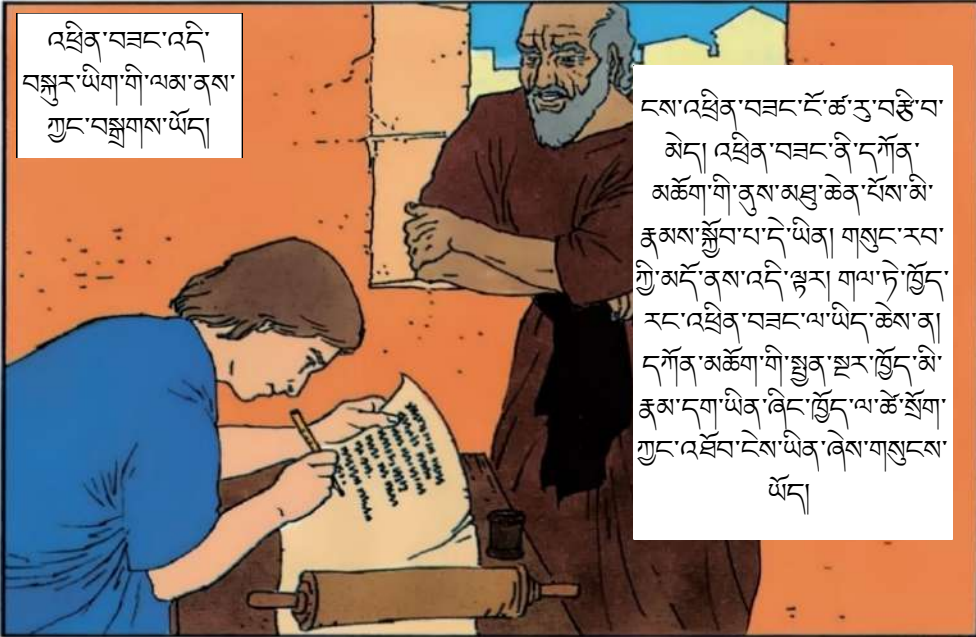 འཕྲིན་བཟང་འདི་
བསྐུར་ཡིག་གི་ལམ་ནས་
ཀྱང་བསྒྲགས་ཡོད།
ངས་འཕྲིན་བཟང་ངོ་ཚ་རུ་བརྩི་བ་
མེད། འཕྲིན་བཟང་ནི་དཀོན་
མཆོག་གི་ནུས་མཐུ་ཆེན་པོས་མི་
རྣམས་སྐྱོབ་པ་དེ་ཡིན། གསུང་རབ་
ཀྱི་མདོ་ནས་འདི་ལྟར། གལ་ཏེ་ཁྱོད་
རང་འཕྲིན་བཟང་ལ་ཡིད་ཆེས་ན།
དཀོན་མཆོག་གི་སྤྱན་སྔར་ཁྱོད་མི་
རྣམ་དག་ཡིན་ཞིང་ཁྱོད་ལ་ཚེ་སྲོག་
ཀྱང་འཐོབ་ངེས་ཡིན་ཞེས་གསུངས་
ཡོད།